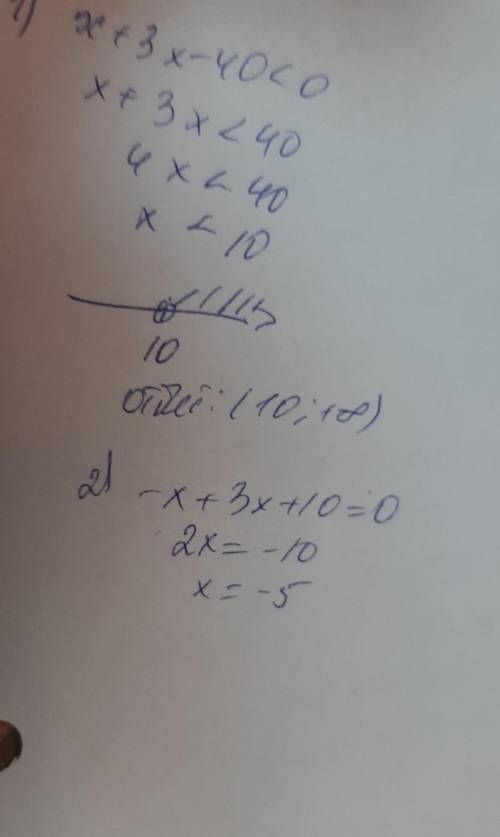 1)
x+3x-40<0
x+3x<40
4x<40
x<10
10
ответ: (10;+∞)
2) -x+3x+10=0
2x=-10
x=-5